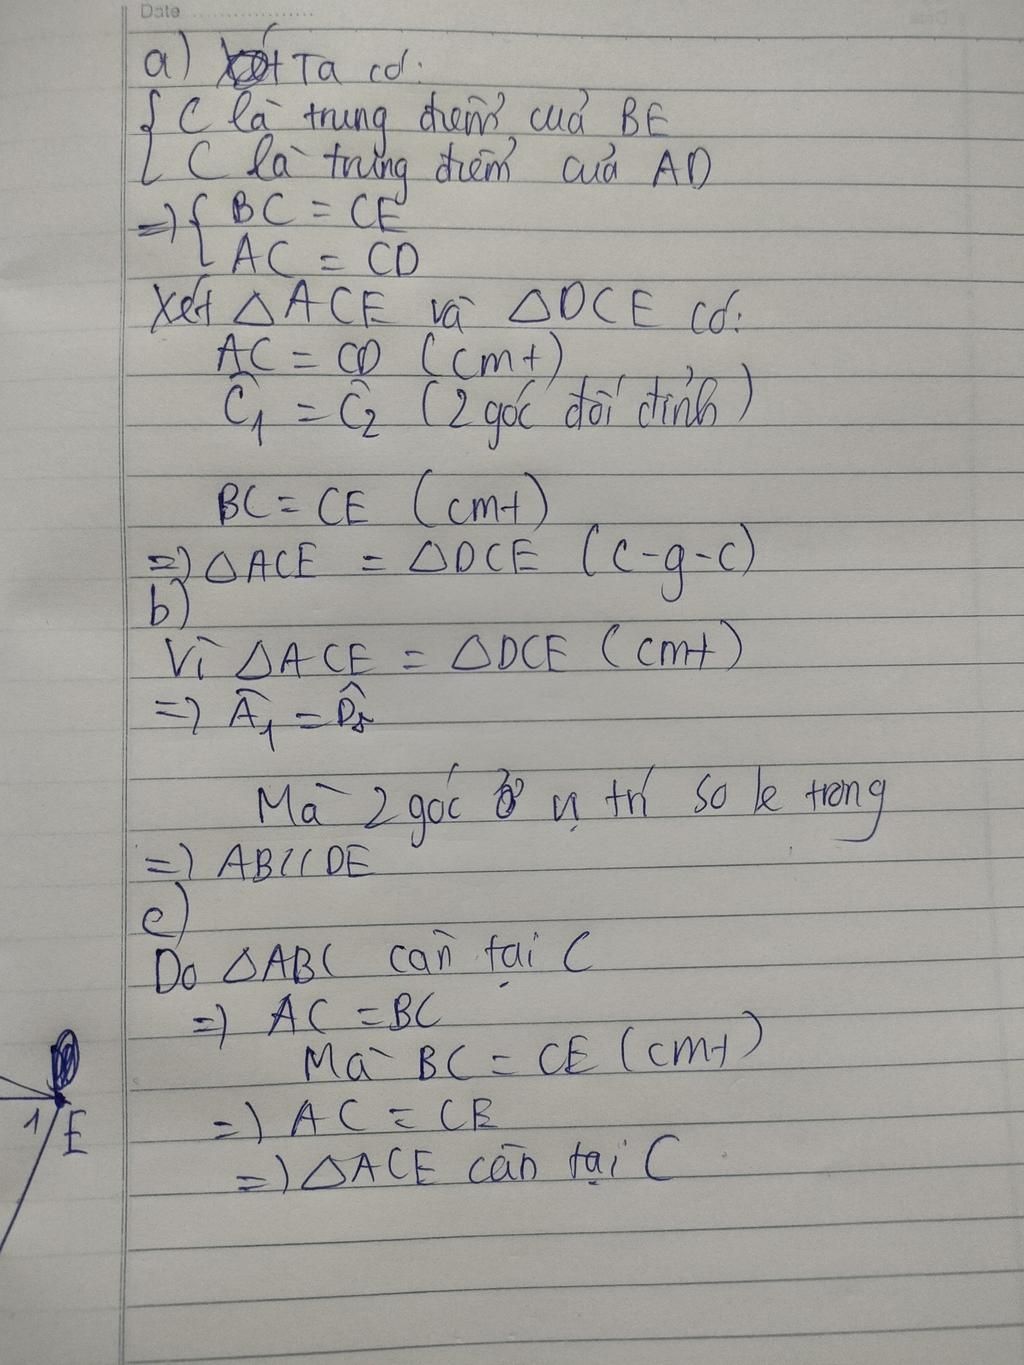 Date
a) Ta có:
{ C là trung điểm của BE
C là trung điểm của AD
=> { BC = CE
AC = CD
Xét △ACE và △DCE có:
AC = CD (cmt)
Ĉ1 = Ĉ2 (2 góc đối đỉnh)
BC = CE (cmt)
=> △ACE = △DCE (c-g-c)
b)
Vì △ACE = △DCE (cmt)
=> Â1 = D̂
Mà 2 góc ở vị trí so le trong
=> AB // DE
c)
Do △ABC cân tại C
=> AC = BC
Mà BC = CE (cmt)
=> AC = CE
=> △ACE cân tại C
1 E